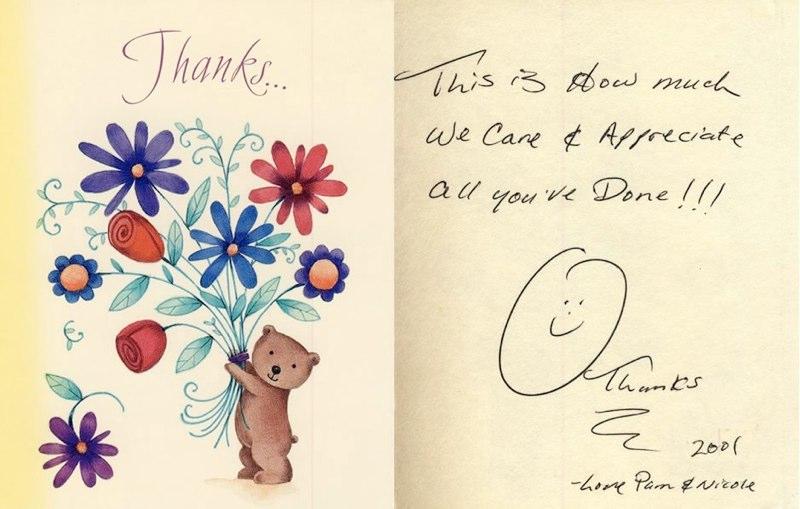 Thanks...
This is How much
We Care & Appreciate
all you've Done!!!
Thanks
2001
-Love Pam & Nicole